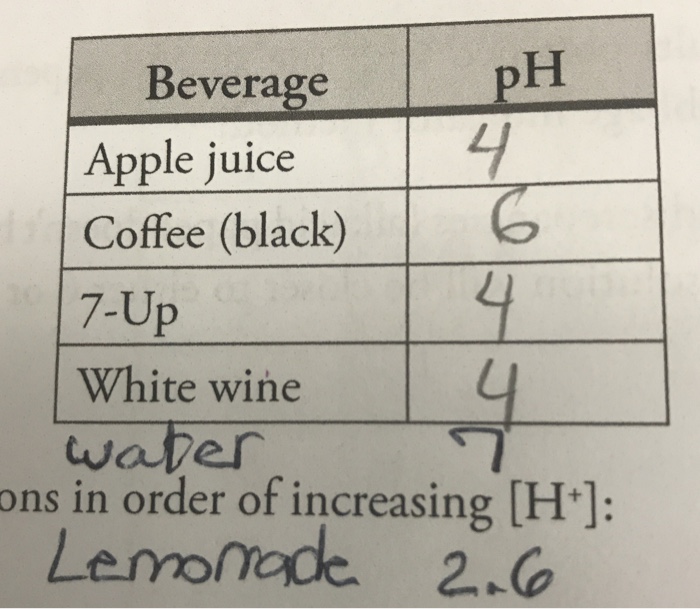 Beverage pH
Apple juice 4
Coffee (black) 6
7-Up 4
White wine 4
water 7
ons in order of increasing [H⁺]:
Lemonade 2.6